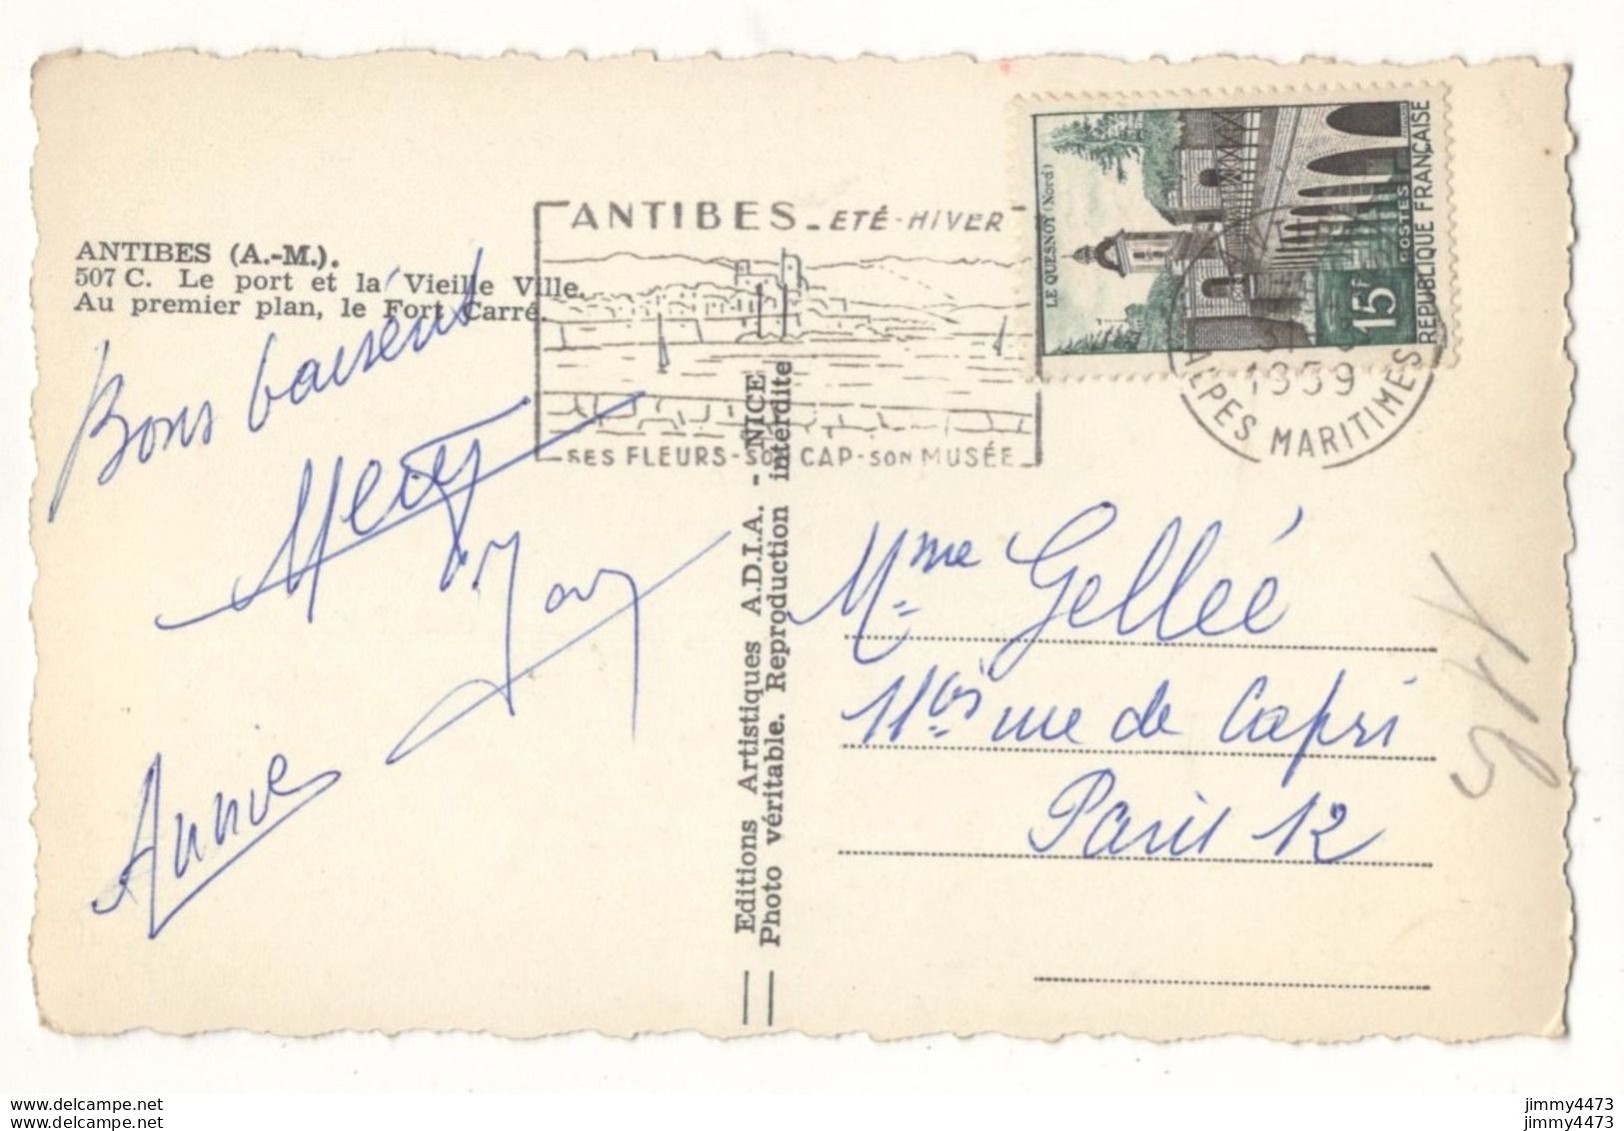 ANTIBES (A.-M.).
507 C. Le port et la Vieille Ville.
Au premier plan, le Fort Carré.
ANTIBES - ETÉ - HIVER
SES FLEURS - SON CAP - SON MUSÉE
LE QUESNOY (Nord)
15F
POSTES
REPUBLIQUE FRANÇAISE
1959
ALPES MARITIMES
Bons baisers
Annie
Editions Artistiques A.D.I.A. - NICE
Photo véritable. Reproduction interdite
Mme Gellée
11bis rue de Capri
Paris 12
delcampe.net
delcampe.net
jimmy4473
jimmy4473